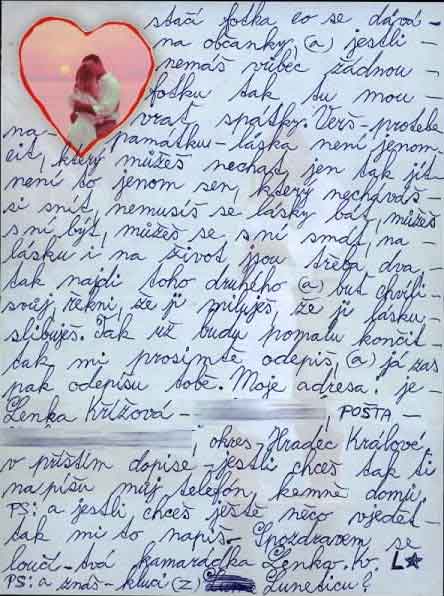 stačí fotka co se dává-
na občanky, (a) jestli-
nemáš vůbec žádnou-
fotku tak tu mou-
vrať spátky. Verš-protebe
na-památku-láska není jenom
cit, který můžeš nechat jen tak jít
není to jenom sen, který necháváš-
si snít, nemusíš se lásky bát, můžeš
s ní být, můžeš se s ní smát, na-
lásku i na život jsou třeba dva,
tak najdi toho druhého (a) buť chvíli-
svůj, řekni, že ji miluješ, že ji lásku-
slibuješ. Tak už budu pomalu končit-
tak mi prosimtě odepiš, (a) já zas
pak odepíšu tobě. Moje adresa je-
Lenka Křížová- , POŠTA-
, okres-Hradec Králové,
v příštím dopise-jestli chceš tak ti
napíšu můj telefón, kemně domů.
PS: a jestli chceš ještě něco vjedět-
tak mi to napiš. Spozdravem se
loučí-tvá kamarádka Lenka. K. L★
PS: a znáš-kluci (z) Luneticu?